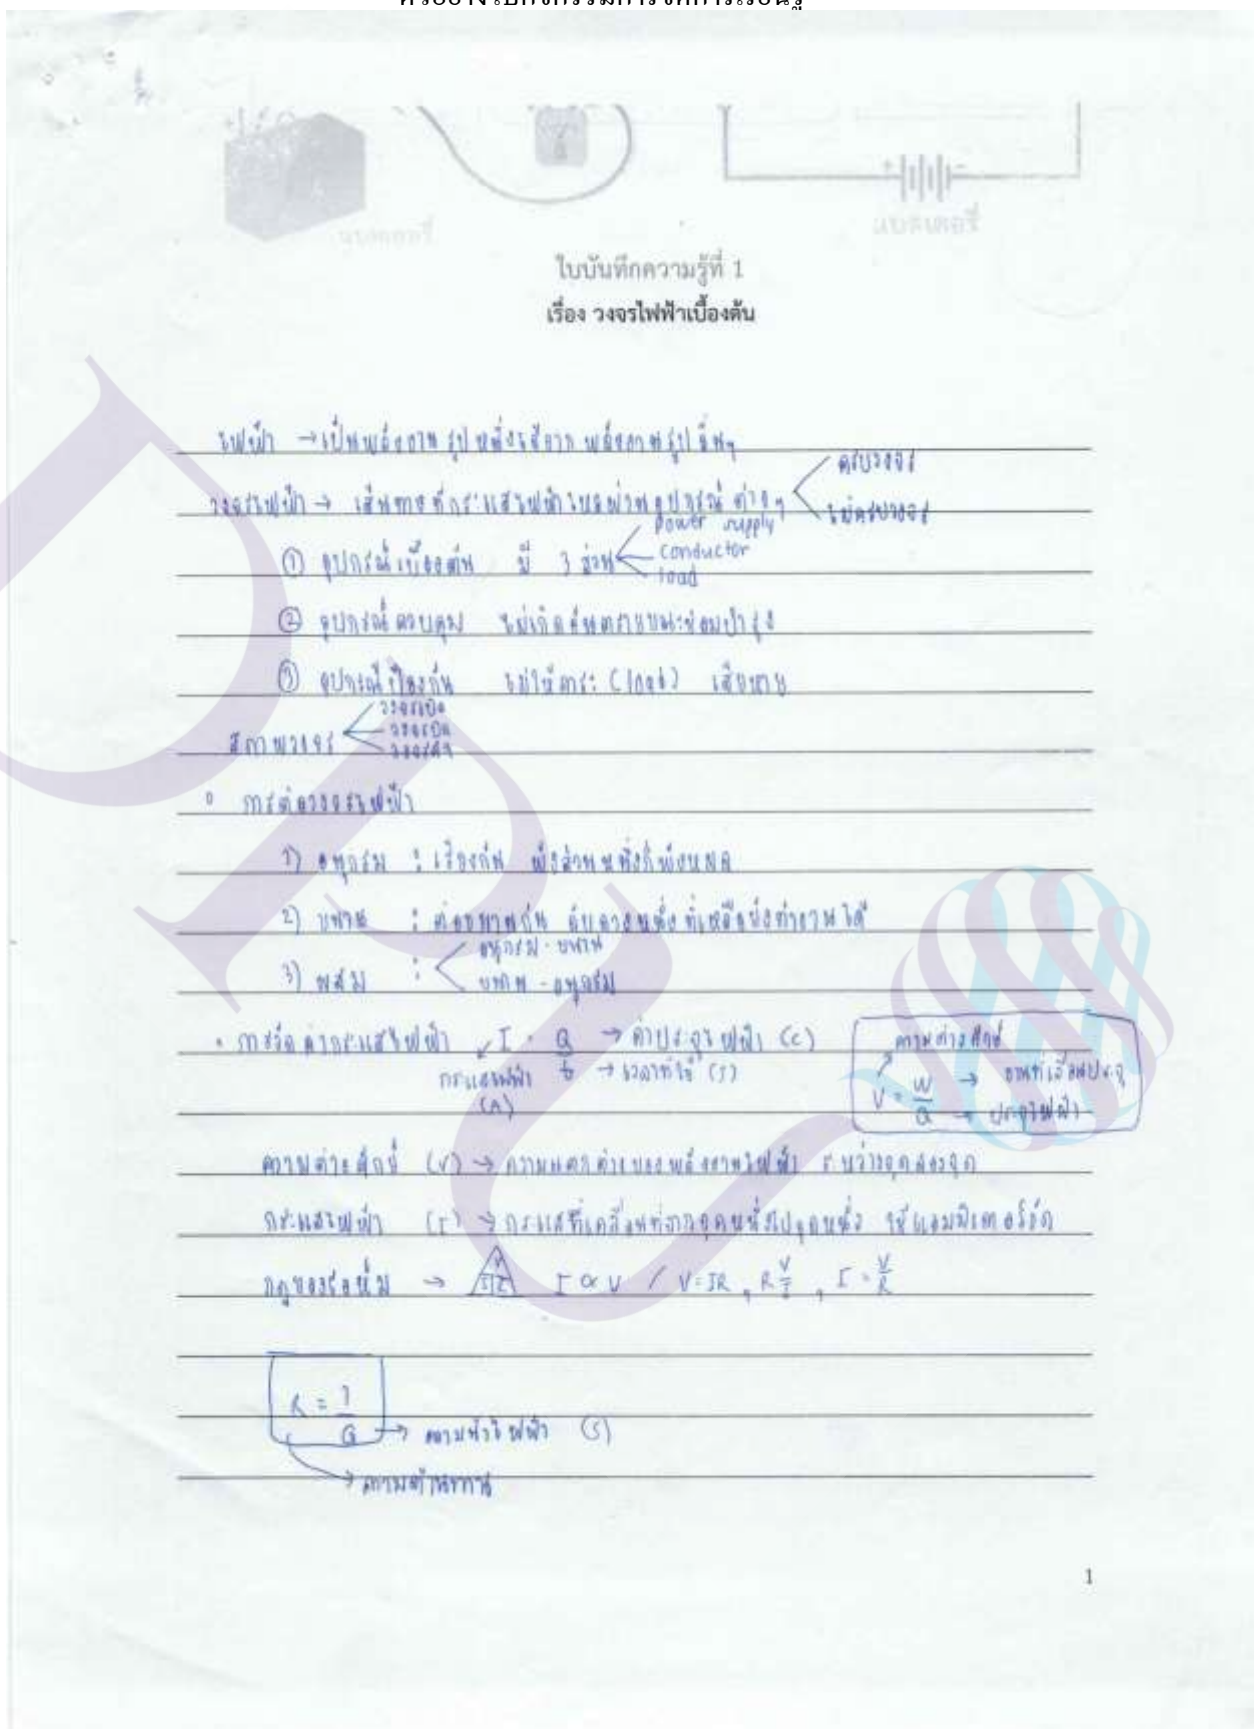 ตัวอย่างใบกิจกรรมการจัดการเรียนรู้
แบตเตอรี่
แบตเตอรี่
ใบบันทึกความรู้ที่ 1
เรื่อง วงจรไฟฟ้าเบื้องต้น
ไฟฟ้า → เป็นพลังงาน รูปหนึ่งได้จาก พลังงานรูปอื่นๆ
วงจรไฟฟ้า → เส้นทางที่กระแสไฟฟ้าไหลผ่านอุปกรณ์ ต่างๆ ครบวงจร
ไม่ครบวงจร
① อุปกรณ์เบื้องต้น มี 3 ส่วน power supply
conductor
load
② อุปกรณ์ควบคุม ไม่เกิดอันตรายขณะซ่อมบำรุง
③ อุปกรณ์ป้องกัน ไม่ให้ภาระ (load) เสียหาย
สภาพวงจร วงจรเปิด
วงจรปิด
วงจรลัด
การต่อวงจรไฟฟ้า
1) อนุกรม : เรียงกัน พังส่วนหนึ่งก็พังหมด
2) ขนาน : ต่อขนานกัน ดับดวงหนึ่ง ที่เหลือยังทำงานได้
3) ผสม : อนุกรม - ขนาน
ขนาน - อนุกรม
• การวัดค่ากระแสไฟฟ้า I = Q → ค่าประจุไฟฟ้า (C)
กระแสไฟฟ้า t → เวลาที่ใช้ (s)
(A)
ความต่างศักย์
V = W → งานที่เลื่อนประจุ
Q → ประจุไฟฟ้า
ความต่างศักย์ (V) → ความแตกต่างของพลังงานไฟฟ้า ระหว่างจุดสองจุด
กระแสไฟฟ้า (I) → กระแสที่เคลื่อนที่จากจุดหนึ่งไปจุดหนึ่ง ใช้แอมมิเตอร์วัด
กฎของโอห์ม → V I R I ∝ V / V=IR , R V/I , I = V/R
R = 1
G → ความนำไฟฟ้า (S)
→ ความต้านทาน
1